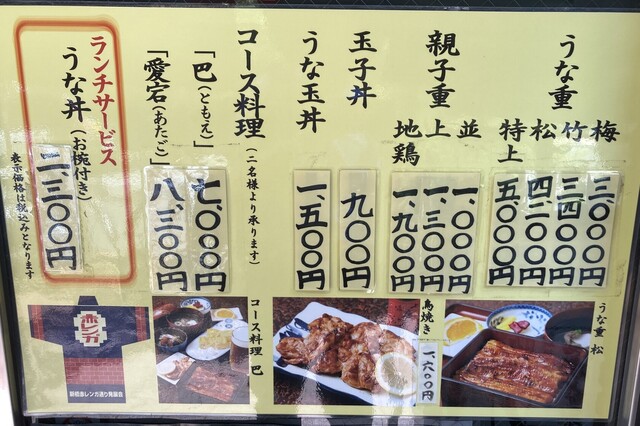 うな重
梅 三、〇〇〇円
竹 三、四〇〇円
松 四、二〇〇円
特上 五、〇〇〇円
親子重
並 一、〇〇〇円
上 一、三〇〇円
地鶏 一、九〇〇円
玉子丼 九〇〇円
うな玉丼 一、五〇〇円
コース料理(二名様より承ります)
「巴(ともえ)」 七、〇〇〇円
「愛宕(あたご)」 八、三〇〇円
ランチサービス
うな丼(お椀付き) 二、三〇〇円
表示価格は税込みとなります
うな重 松
鳥焼き
一、六〇〇円
コース料理 巴
赤レンガ